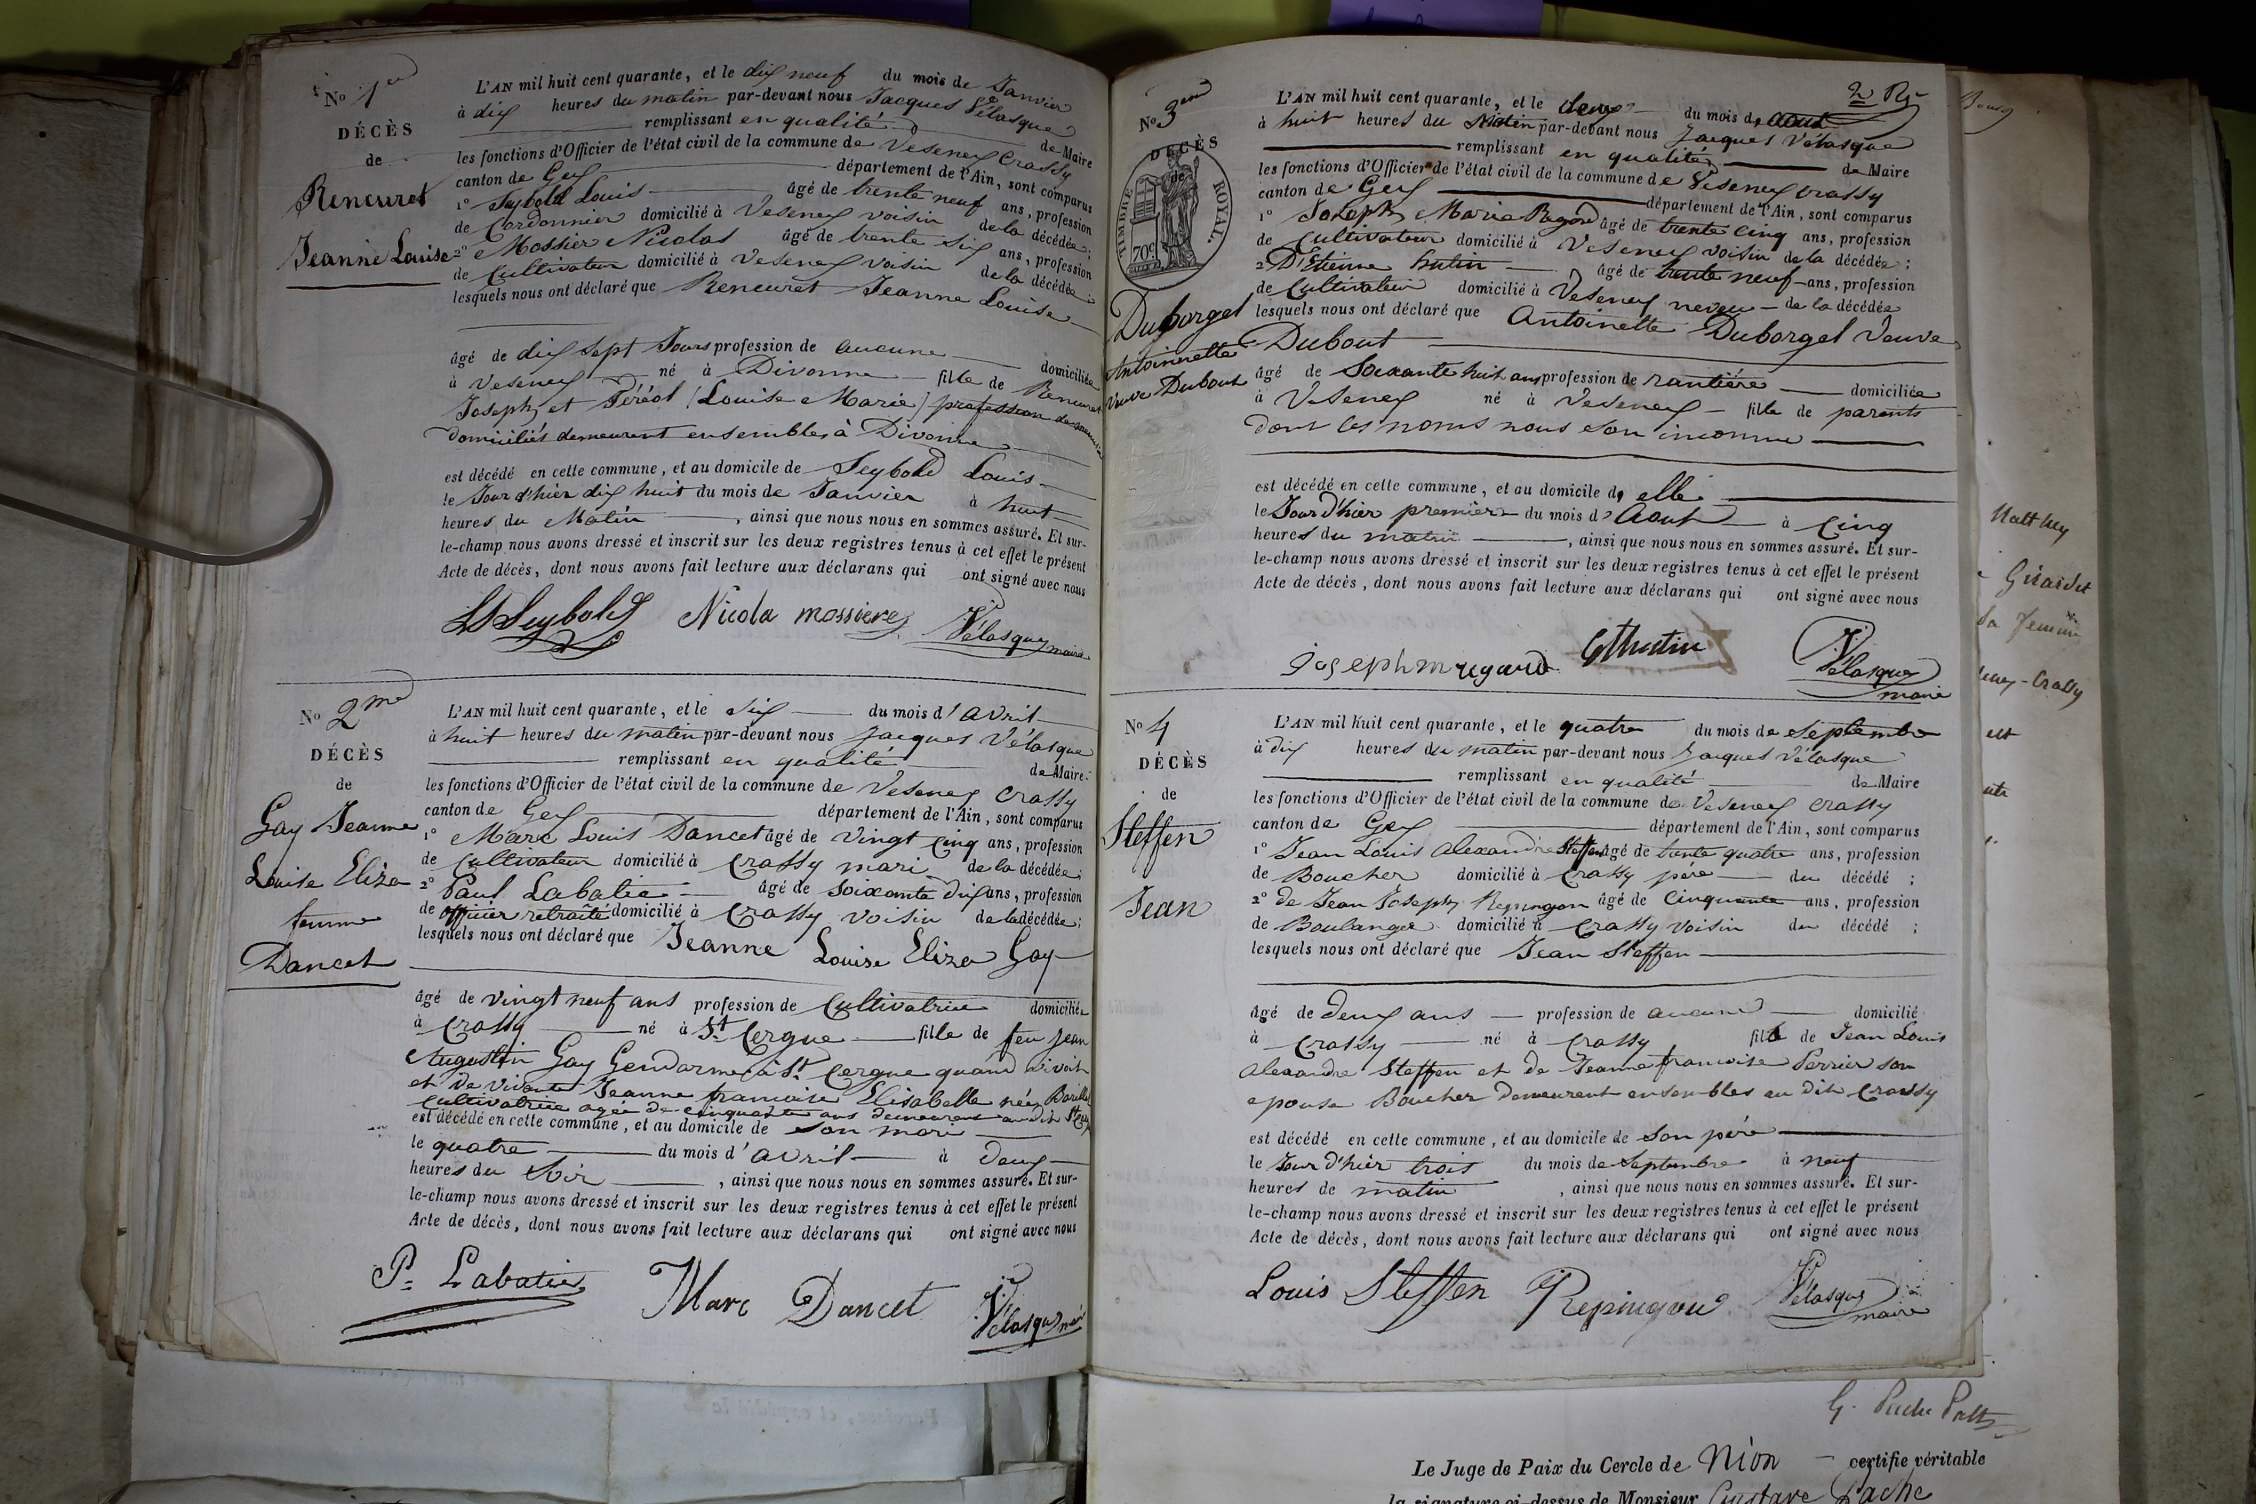 No 1er
DÉCÈS
de
Rencuret
Jeanne Louise
L'AN mil huit cent quarante, et le dix neuf du mois de Janvier
à dix heures du matin par-devant nous Jacques Vélasque
remplissant en qualité de Maire
les fonctions d'Officier de l'état civil de la commune de Vesenex Crassy
canton de Gex département de l'Ain, sont comparus
1° Seybold Louis âgé de trente neuf ans, profession
de Cordonnier domicilié à Vesenex voisin de la décédée;
2° Mossier Nicolas âgé de trente six ans, profession
de Cultivateur domicilié à Vesenex voisin de la décédée;
lesquels nous ont déclaré que Rencuret Jeanne Louise
âgé de dix sept Jours profession de aucune domiciliée
à Vesenex né à Divonne fille de Rencuret
Joseph et Féréol (Louise Marie) profession de
domiciliés demeurent ensembles à Divonne
est décédé en cette commune, et au domicile de Seybold Louis
le Jour d'hier dix huit du mois de Janvier à huit
heures du Matin, ainsi que nous nous en sommes assuré. Et sur-
le-champ nous avons dressé et inscrit sur les deux registres tenus à cet effet le présent
Acte de décès, dont nous avons fait lecture aux déclarans qui ont signé avec nous
Ls Seybold Nicola mossiere JVélasque maire
No 2me
DÉCÈS
de
Gay Jeanne
Louise Eliza
femme
Dancet
L'AN mil huit cent quarante, et le Six du mois d'avril
à huit heures du matin par-devant nous Jacques Vélasque
remplissant en qualité de Maire
les fonctions d'Officier de l'état civil de la commune de Vesenex Crassy
canton de Gex département de l'Ain, sont comparus
1° Marc Louis Dancet âgé de Vingt Cinq ans, profession
de Cultivateur domicilié à Crassy mari de la décédée;
2° Paul Labatie âgé de soixante dix ans, profession
de officier retraité domicilié à Crassy voisin de la décédée;
lesquels nous ont déclaré que Jeanne Louise Eliza Gay
âgé de vingt neuf ans profession de Cultivatrice domiciliée
à Crassy né à St Cergue fille de feu Jean
Augustin Gay Gendarme à St Cergue quand vivoit
et de vivante Jeanne francoise Elisabelle née
Cultivatrice agée de cinquante ans demeurent au dit St Cergue
est décédé en cette commune, et au domicile de son mari
le quatre du mois d'avril à deux
heures du Soir, ainsi que nous nous en sommes assuré. Et sur-
le-champ nous avons dressé et inscrit sur les deux registres tenus à cet effet le présent
Acte de décès, dont nous avons fait lecture aux déclarans qui ont signé avec nous
P. Labatie Marc Dancet JVélasque maire
2e
No 3eme
DÉCÈS
de
TIMBRE ROYAL.
70c.
Duborgel
Antoinette
veuve Dubout
L'AN mil huit cent quarante, et le deux du mois d'aout
à huit heures du Matin par-devant nous Jacques Vélasque
remplissant en qualité de Maire
les fonctions d'Officier de l'état civil de la commune de Vesenex Crassy
canton de Gex département de l'Ain, sont comparus
1° Joseph Marie Regard âgé de trente Cinq ans, profession
de Cultivateur domicilié à Vesenex voisin de la décédée;
2° D'Etienne hutin âgé de trente neuf ans, profession
de Cultivateur domicilié à Vesenex neveu de la décédée
lesquels nous ont déclaré que Antoinette Duborgel Veuve
Dubout
âgé de Soixante huit ans profession de rantière domiciliée
à Vesenex né à Vesenex fille de parents
dont les noms nous son inconnu
est décédé en cette commune, et au domicile d'elle
le Jour d'hier premier du mois d'Aout à Cinq
heures du matin, ainsi que nous nous en sommes assuré. Et sur-
le-champ nous avons dressé et inscrit sur les deux registres tenus à cet effet le présent
Acte de décès, dont nous avons fait lecture aux déclarans qui ont signé avec nous
joseph m regard Hutin JVélasque maire
No 4
DÉCÈS
de
Steffen
Jean
L'AN mil huit cent quarante, et le quatre du mois de septembre
à dix heures du matin par-devant nous Jacques Vélasque
remplissant en qualité de Maire
les fonctions d'Officier de l'état civil de la commune de Vesenex Crassy
canton de Gex département de l'Ain, sont comparus
1° Jean Louis Alexandre Steffen âgé de trente quatre ans, profession
de Boucher domicilié à Crassy père du décédé;
2° de Jean Joseph Repingon âgé de Cinquante ans, profession
de Boulanger domicilié à Crassy voisin du décédé;
lesquels nous ont déclaré que Jean Steffen
âgé de deux ans profession de aucune domicilié
à Crassy né à Crassy fils de Jean Louis
Alexandre Steffen et de Jeanne francoise Perrier son
epouse Boucher demeurent ensembles au dit Crassy
est décédé en cette commune, et au domicile de son père
le Jour d'hier trois du mois de Septembre à neuf
heures de matin, ainsi que nous nous en sommes assuré. Et sur-
le-champ nous avons dressé et inscrit sur les deux registres tenus à cet effet le présent
Acte de décès, dont nous avons fait lecture aux déclarans qui ont signé avec nous
Louis Steffen Repingon JVélasque maire
Matthey
Girardet
sa femme
Crassy
est
Le Juge de Paix du Cercle de Nion certifie véritable
la signature ci-dessus de Monsieur Gustave Pache